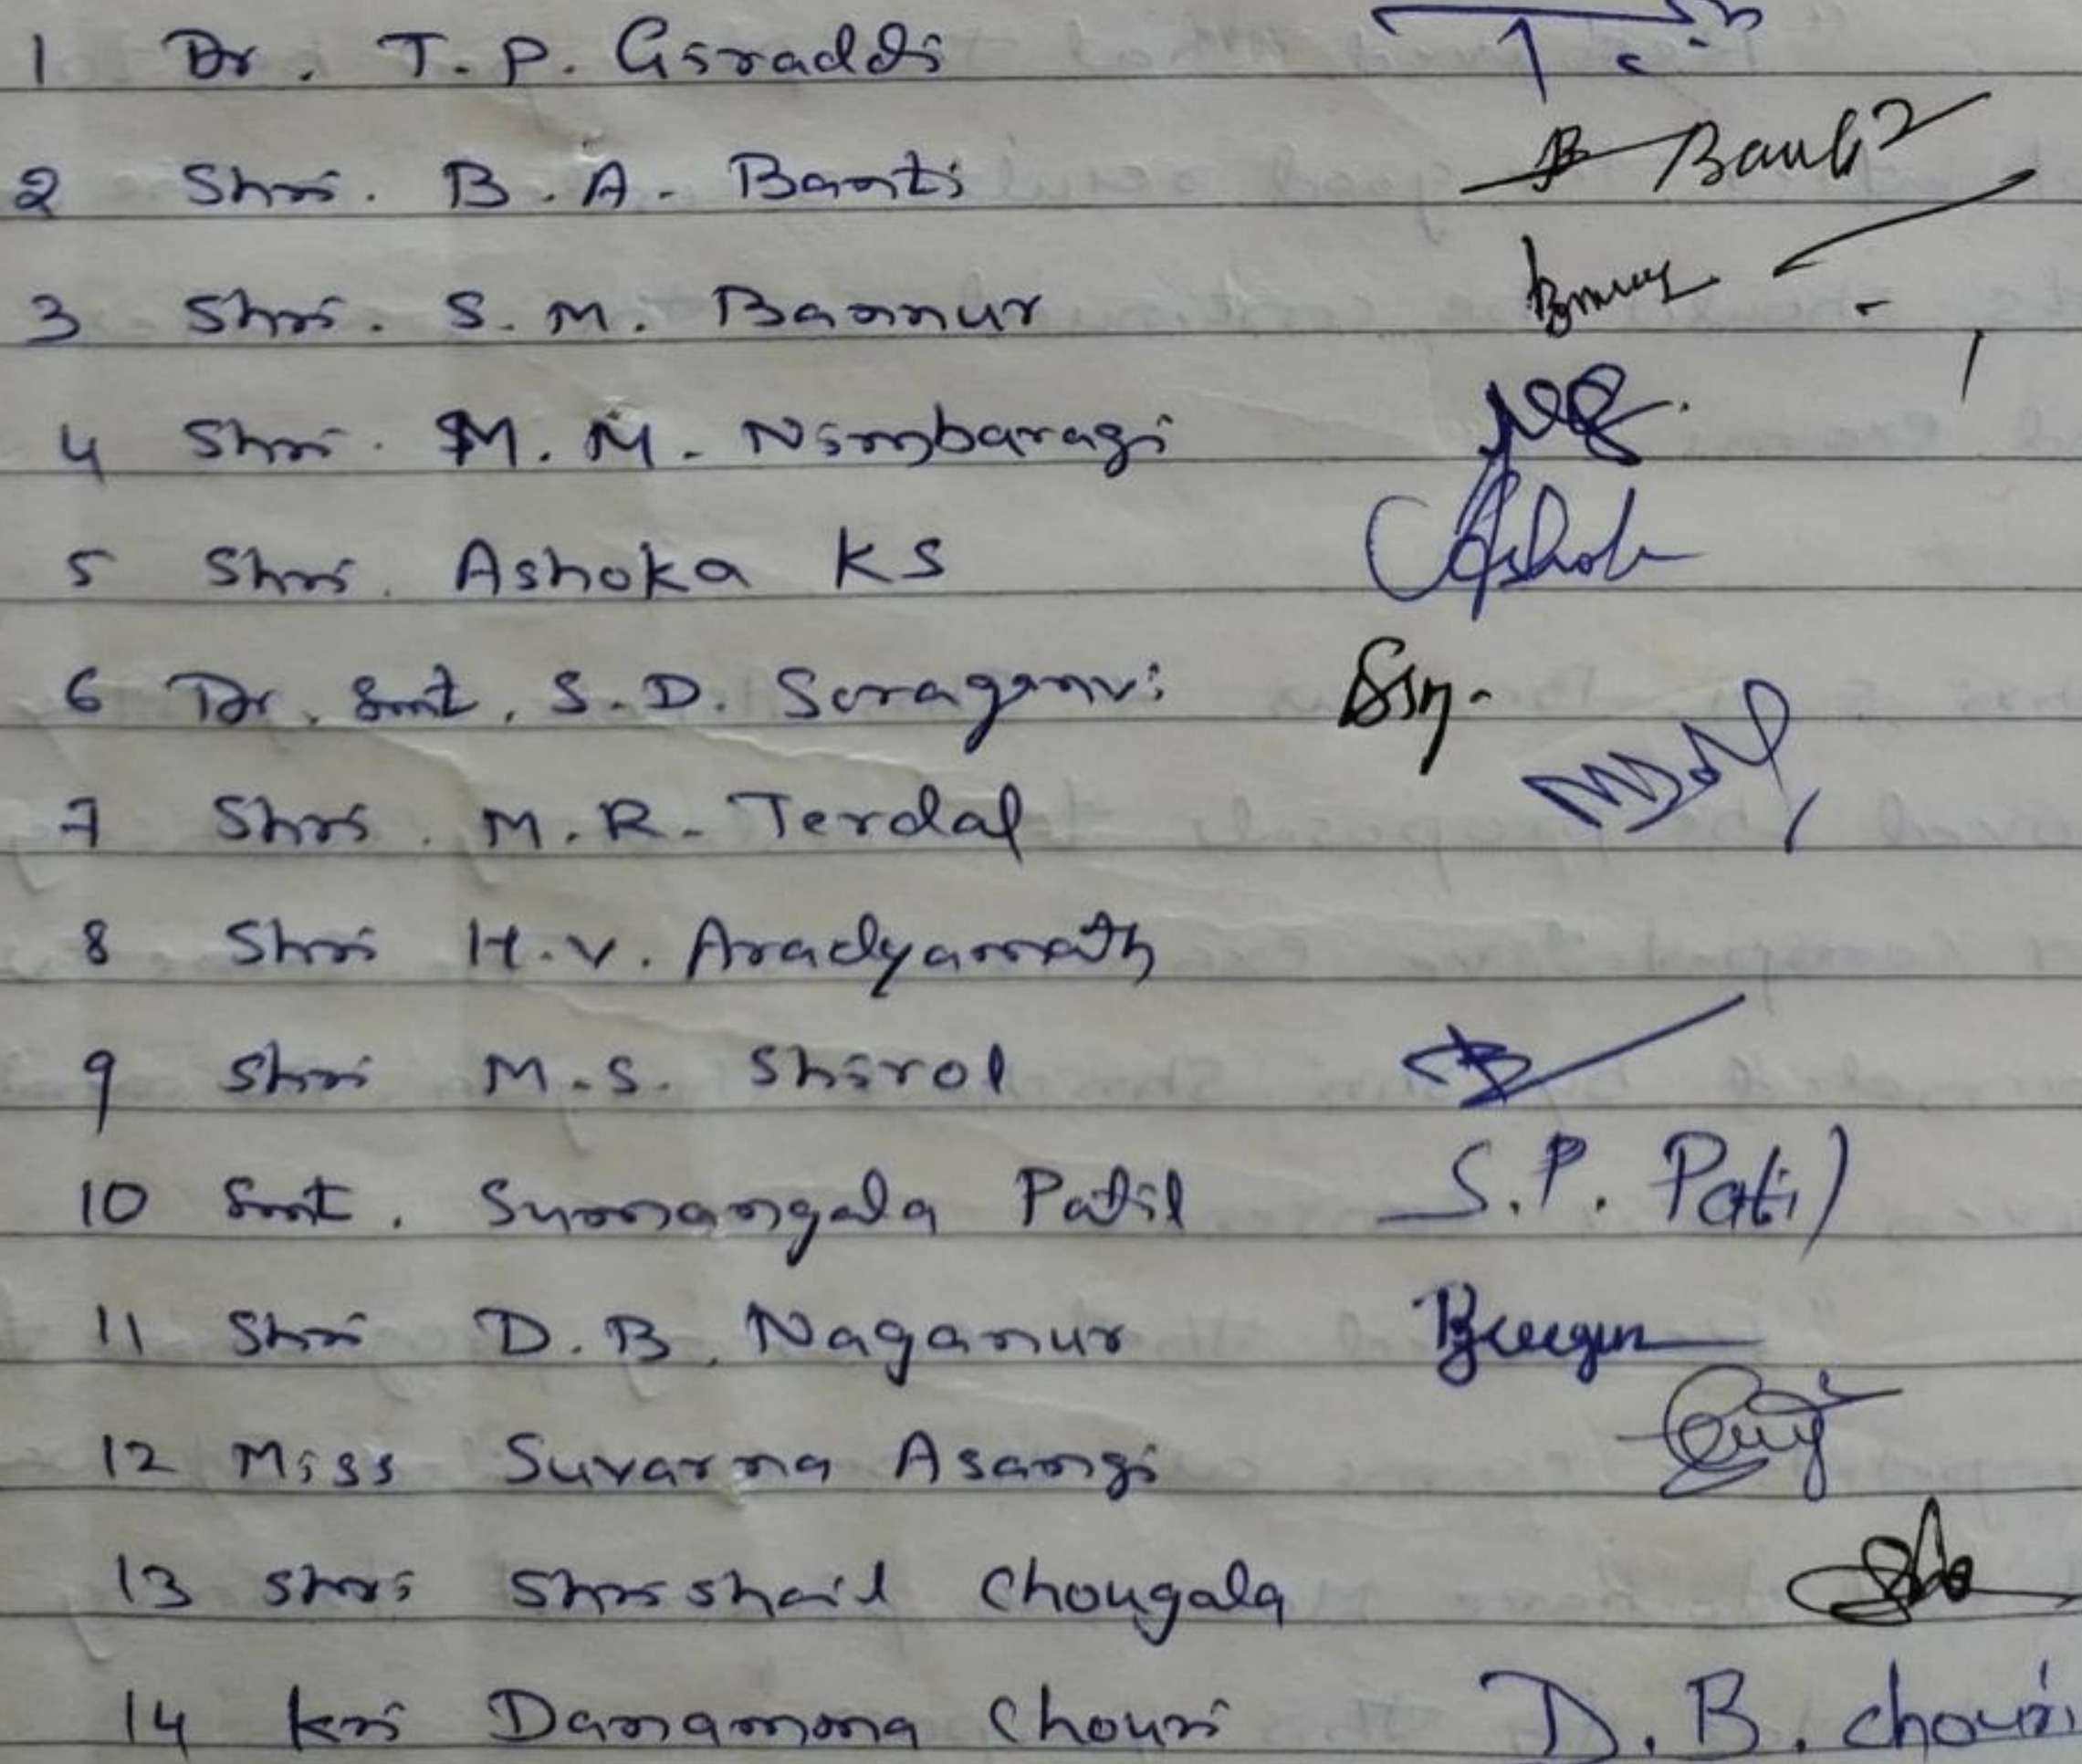 1 Dr. T. P. Giraddi
2 Shri. B. A. Banti B Banti
3 Shri. S. M. Bannur
4 Shri. M. M. Nimbaragi
5 Shri. Ashoka KS Ashok
6 Dr. Smt. S. D. Soraganvi
7 Shri. M. R. Terdal
8 Shri H. V. Aradyamath
9 Shri M. S. Shirol
10 Smt. Sumangala Patil S. P. Patil
11 Shri D. B. Naganur
12 Miss Suvarna Asangi
13 Shri Shrishail Chougala
14 Kri Danamma Chouri D. B. Chouri